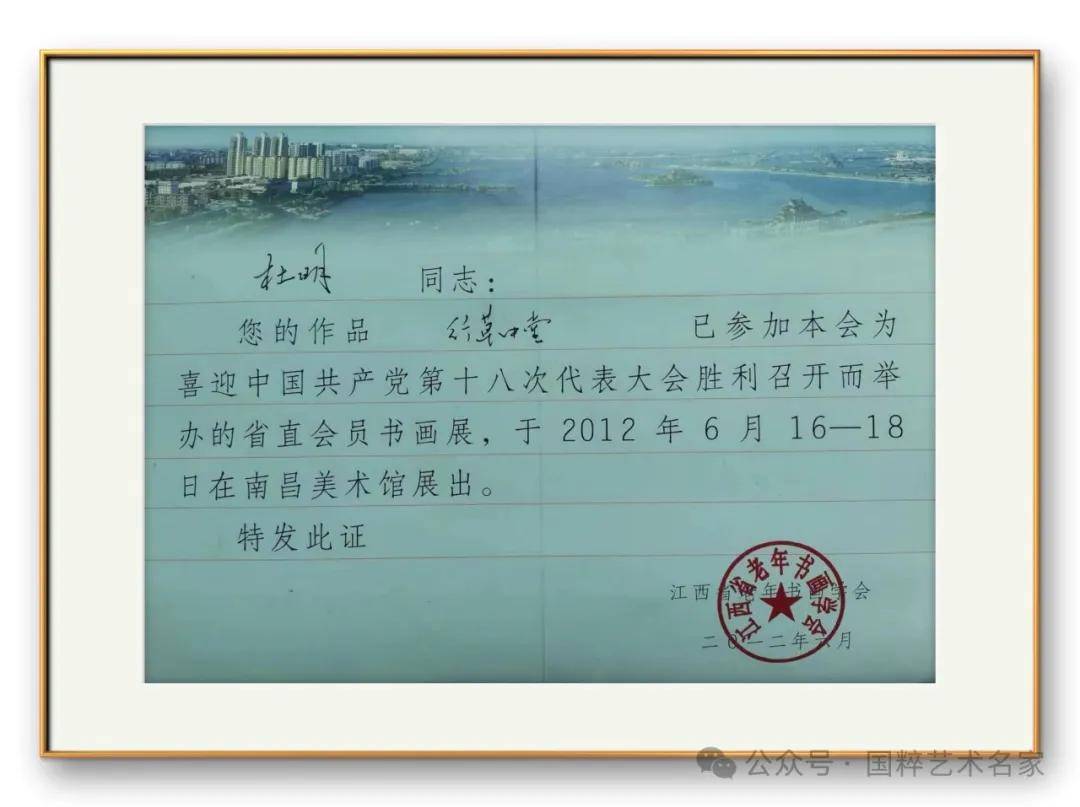 杜明 同志：
您的作品 行草中堂 已参加本会为
喜迎中国共产党第十八次代表大会胜利召开而举
办的省直会员书画展，于 2012 年 6 月 16—18
日在南昌美术馆展出。
特发此证
江西省老年书画学会
二〇一二年六月
江西省老年书画学会
公众号·国粹艺术名家